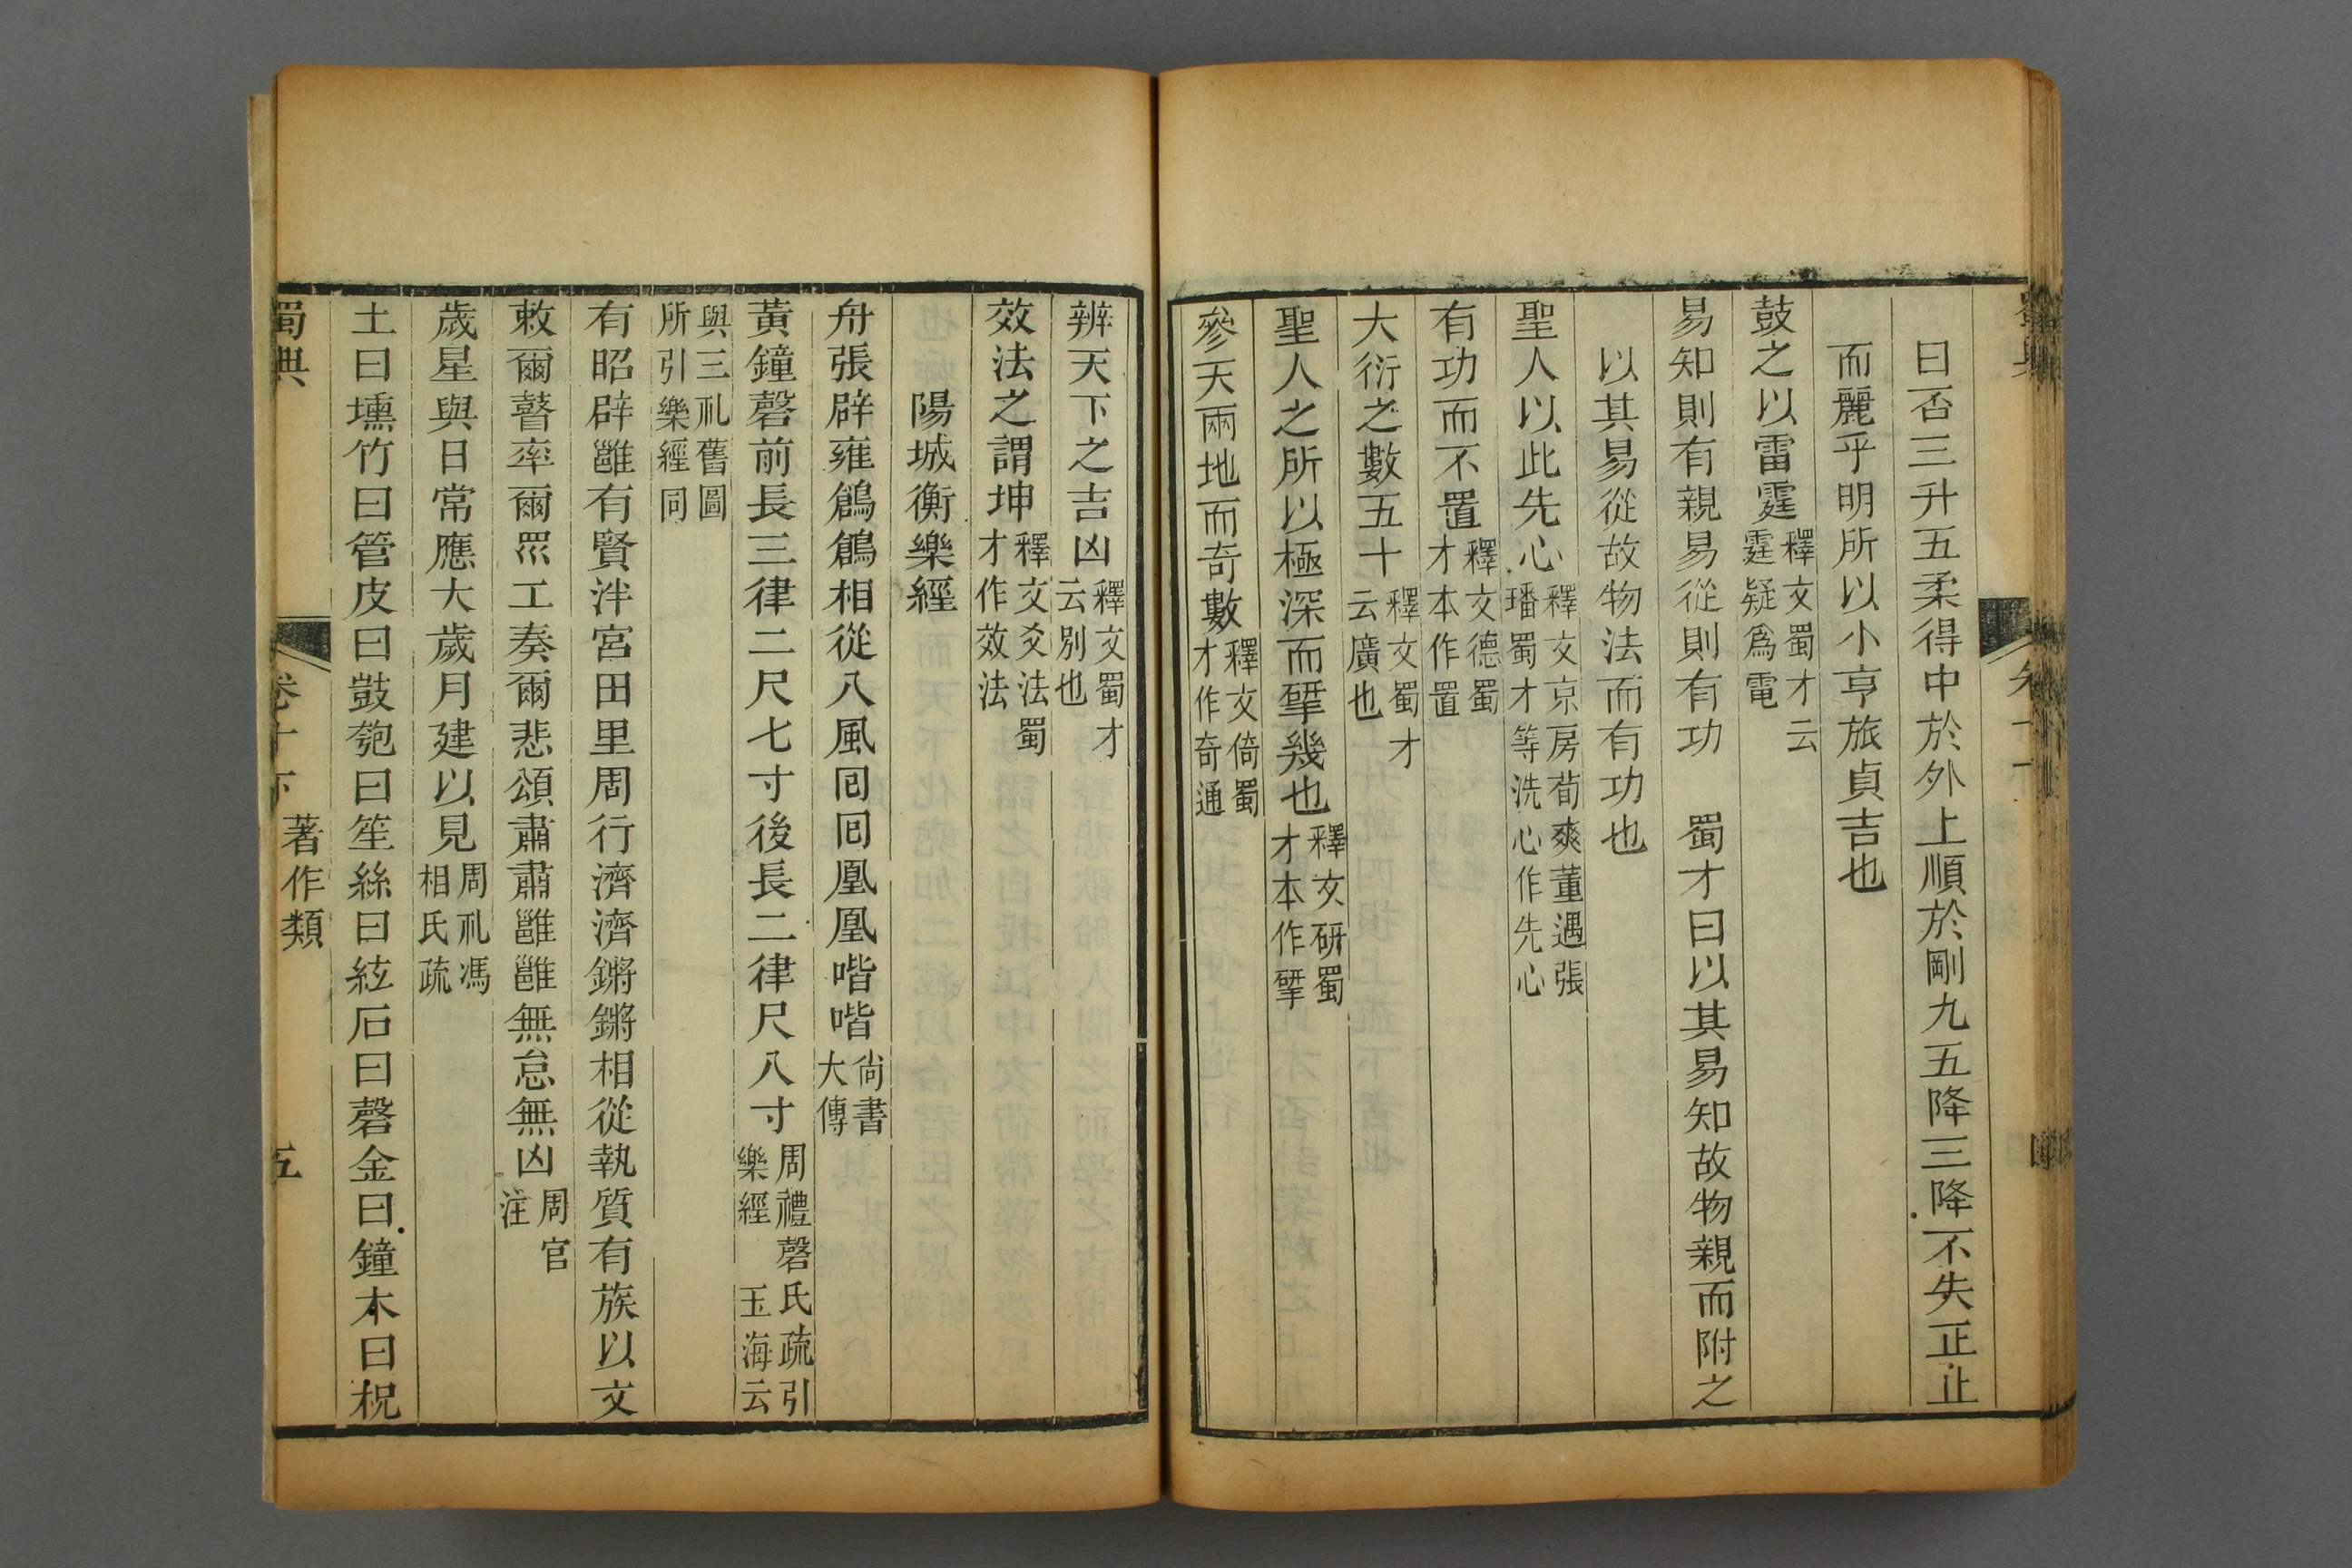 曰否三升五柔得中於外上順於剛九五降三降不失正止
而麗乎明所以小亨旅貞吉也
鼓之以雷霆釋文蜀才云霆疑爲電
易知則有親易從則有功　蜀才曰以其易知故物親而附之
以其易從故物法而有功也
聖人以此先心釋文京房荀爽董遇張璠蜀才等洗心作先心
有功而不置釋文德蜀才本作置
大衍之數五十釋文蜀才云廣也
聖人之所以極深而揅幾也釋文研蜀才本作揅
參天兩地而奇數釋文倚蜀才作奇通
辨天下之吉凶釋文蜀才云別也
效法之謂坤釋文爻法蜀才作效法
陽城衡樂經
舟張辟雍鶬鶬相從八風囘囘凰凰喈喈尙書大傳
黃鐘磬前長三律二尺七寸後長二律尺八寸周禮磬氏疏引樂經　玉海云
與三礼舊圖所引樂經同
有昭辟雝有賢泮宮田里周行濟濟鏘鏘相從執質有族以文
敕爾瞽率爾眾工奏爾悲頌肅肅雝雝無怠無凶周官注
歲星與日常應大歲月建以見周礼馮相氏疏
土曰壎竹曰管皮曰鼓匏曰笙絲曰絃石曰磬金曰鐘木曰柷
蜀典　卷十下　著作類　五